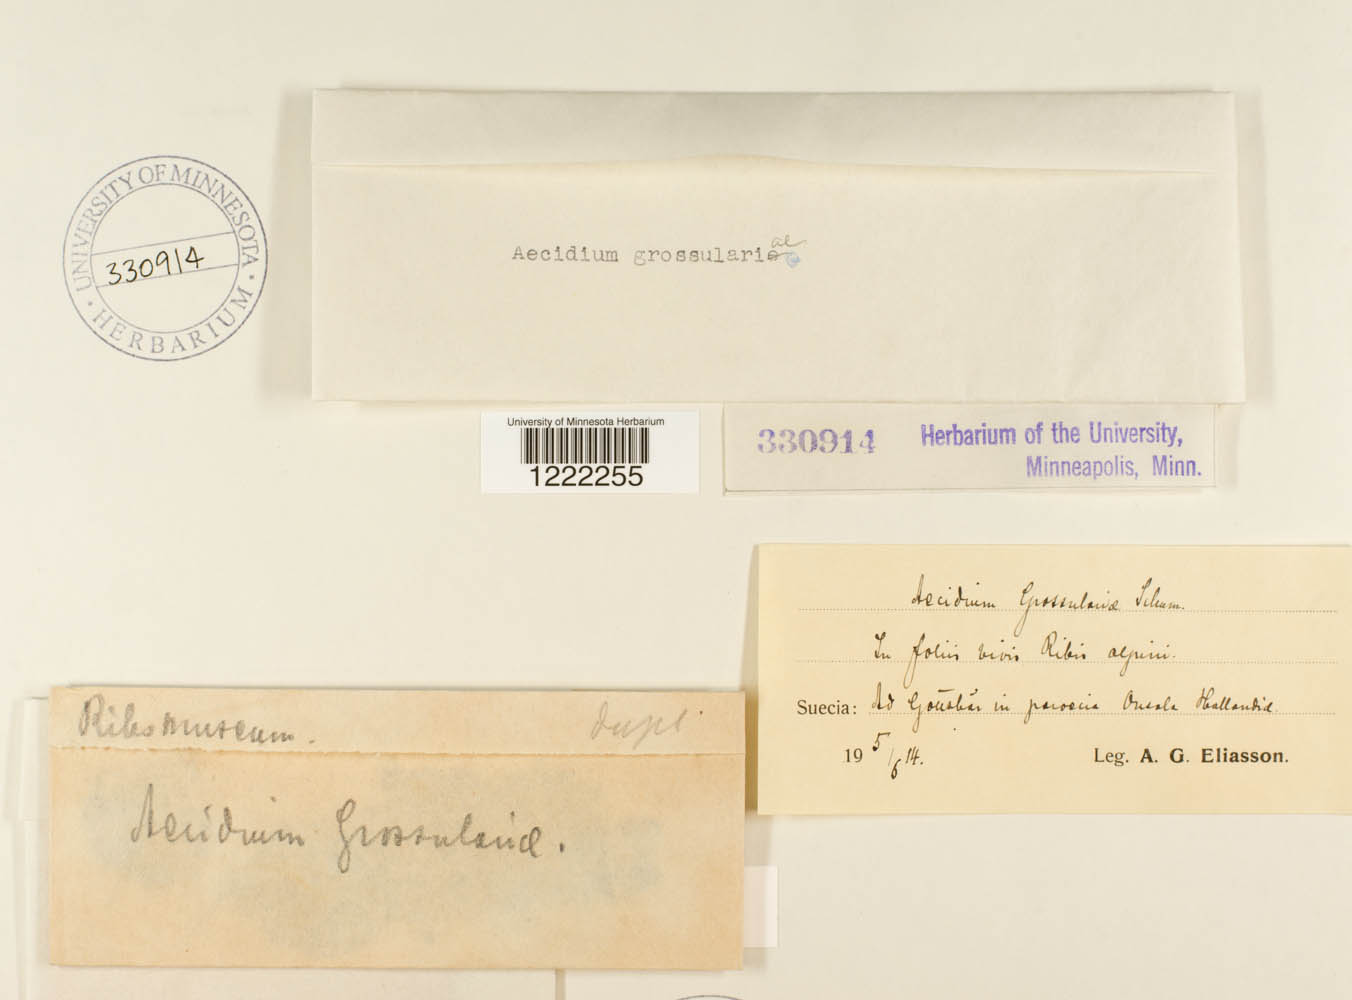 UNIVERSITY OF MINNESOTA
330914
· HERBARIUM ·
Aecidium grossulariae
University of Minnesota Herbarium
1222255
330914 Herbarium of the University,
Minneapolis, Minn.
Aecidium Grossulariæ Schum.
In foliis vivis Ribis alpini.
Suecia: Ad Gottskär in paroecia Onsala Hallandiæ.
19 5/6 14. Leg. A. G. Eliasson.
dupl
Aecidium Grossulariæ.